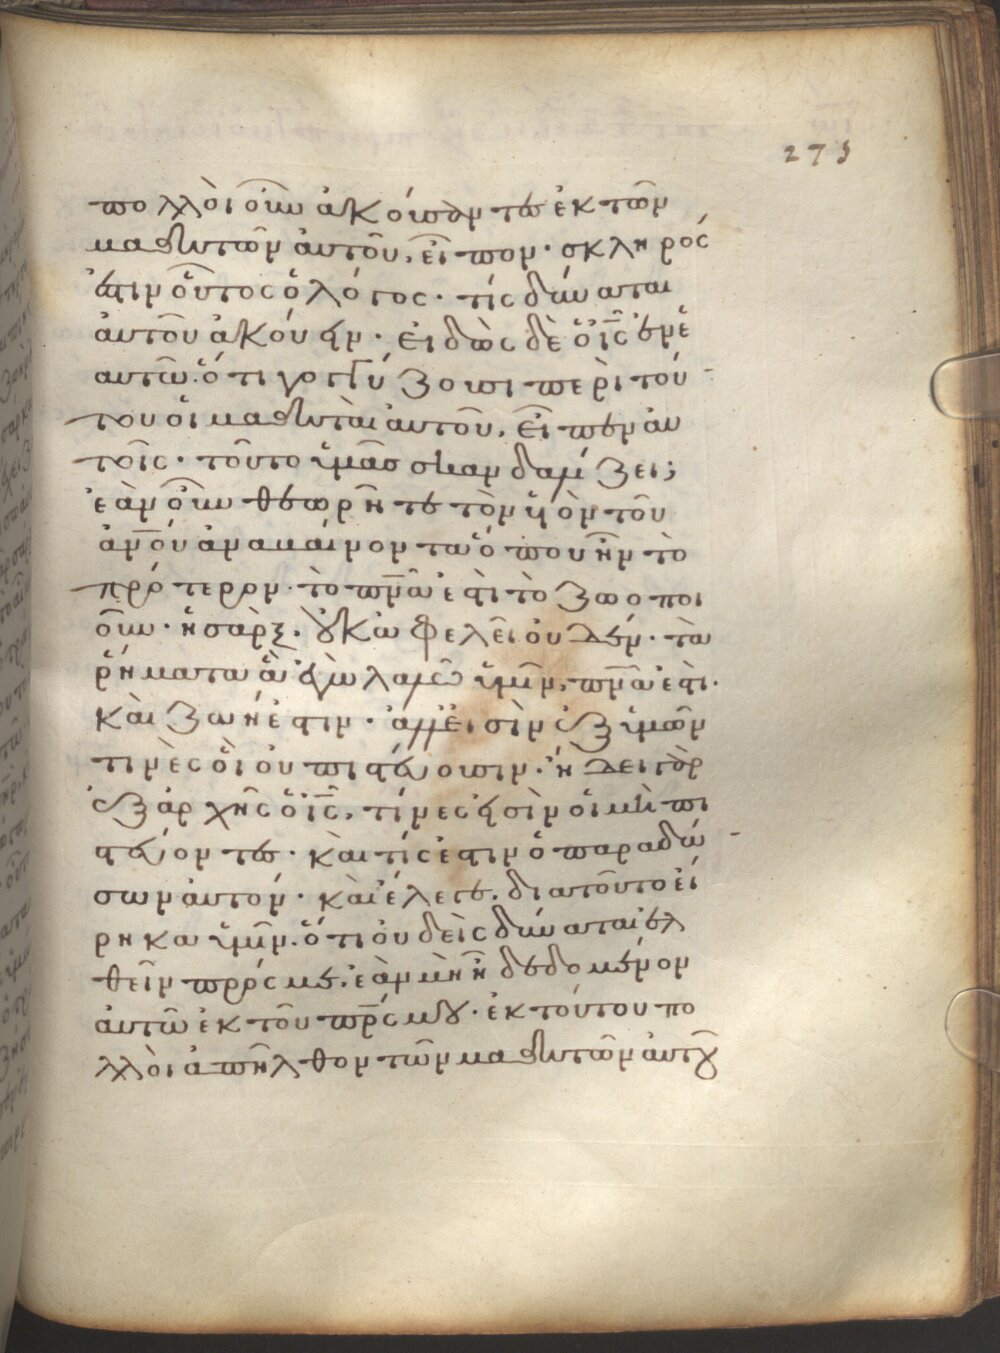 273
πολλοὶ οὖν ἀκούσαντες ἐκ τῶν
μαθητῶν ἀυτοῦ, εἶπον· σκληρός
ἐστιν οὗτος ὁ λόγος· τίς δύναται
ἀυτοῦ ἀκούειν· εἰδὼς δὲ ὁ ι̅ς̅ ἐν ἑ
αυτῶ. ὅτι γογγύζουσι περὶ τού
του οἱ μαθηταὶ ἀυτοῦ, εἶπεν ἀυ
τοῖς· τοῦτο ὑμᾶς σκανδαλίζει;
ἐὰν οὖν θεωρῆτε τὸν υἱὸν τοῦ
ἀν̅ο̅υ̅ ἀναβαίνοντα ὅπου ἦν τὸ
πρότερον· τὸ π̅ν̅α̅ ἐστὶ τὸ ζωοποι
οῦν· ἡ σὰρξ. οὐκ ὠφελεῖ οὐδέν· τὰ
ῥήματα ἃ ἐγὼ λαλῶ ὑμῖν, π̅ν̅α̅ ἐστι·
καὶ ζωή ἐστιν· ἀλλ' εἰσὶν ἐξ ὑμῶν
τινὲς οἳ οὐ πιστεύουσιν. ἤδει γὰρ
ἐξ ἀρχῆς ὁ ι̅ς̅, τίνες εἰσὶν οἱ μὴ πι
στεύοντες· καὶ τίς ἐστιν ὁ παραδώ
σων ἀυτόν· καὶ ἔλεγε. διατοῦτο εἴ
ρηκα ὑμῖν. ὅτι οὐδεὶς δύναται ἐλ
θεῖν πρός με, ἐὰν μὴ ἦ δεδομένον
ἀυτῶ ἐκ τοῦ π̅ρ̅ς̅ μου· ἐκ τούτου πο
λλοὶ ἀπῆλθον τῶν μαθητῶν ἀυτοῦ